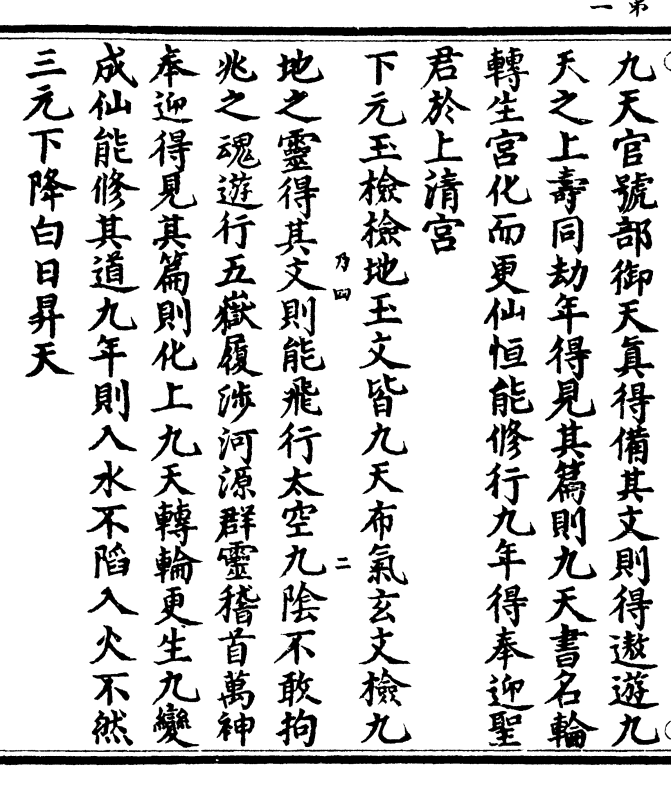 第一
九天官號部御天真得備其文則得遨遊九
天之上壽同劫年得見其篇則九天書名輪
轉生宮化而更仙恒能修行九年得奉迎聖
君於上清宮
下元玉檢檢地玉文皆九天布氣玄文檢九
乃四
二
地之靈得其文則能飛行太空九陰不敢拘
兆之魂遊行五嶽履涉河源群靈稽首萬神
奉迎得見其篇則化上九天轉輪更生九變
成仙能修其道九年則入水不䧟入火不然
三元下降白日昇天